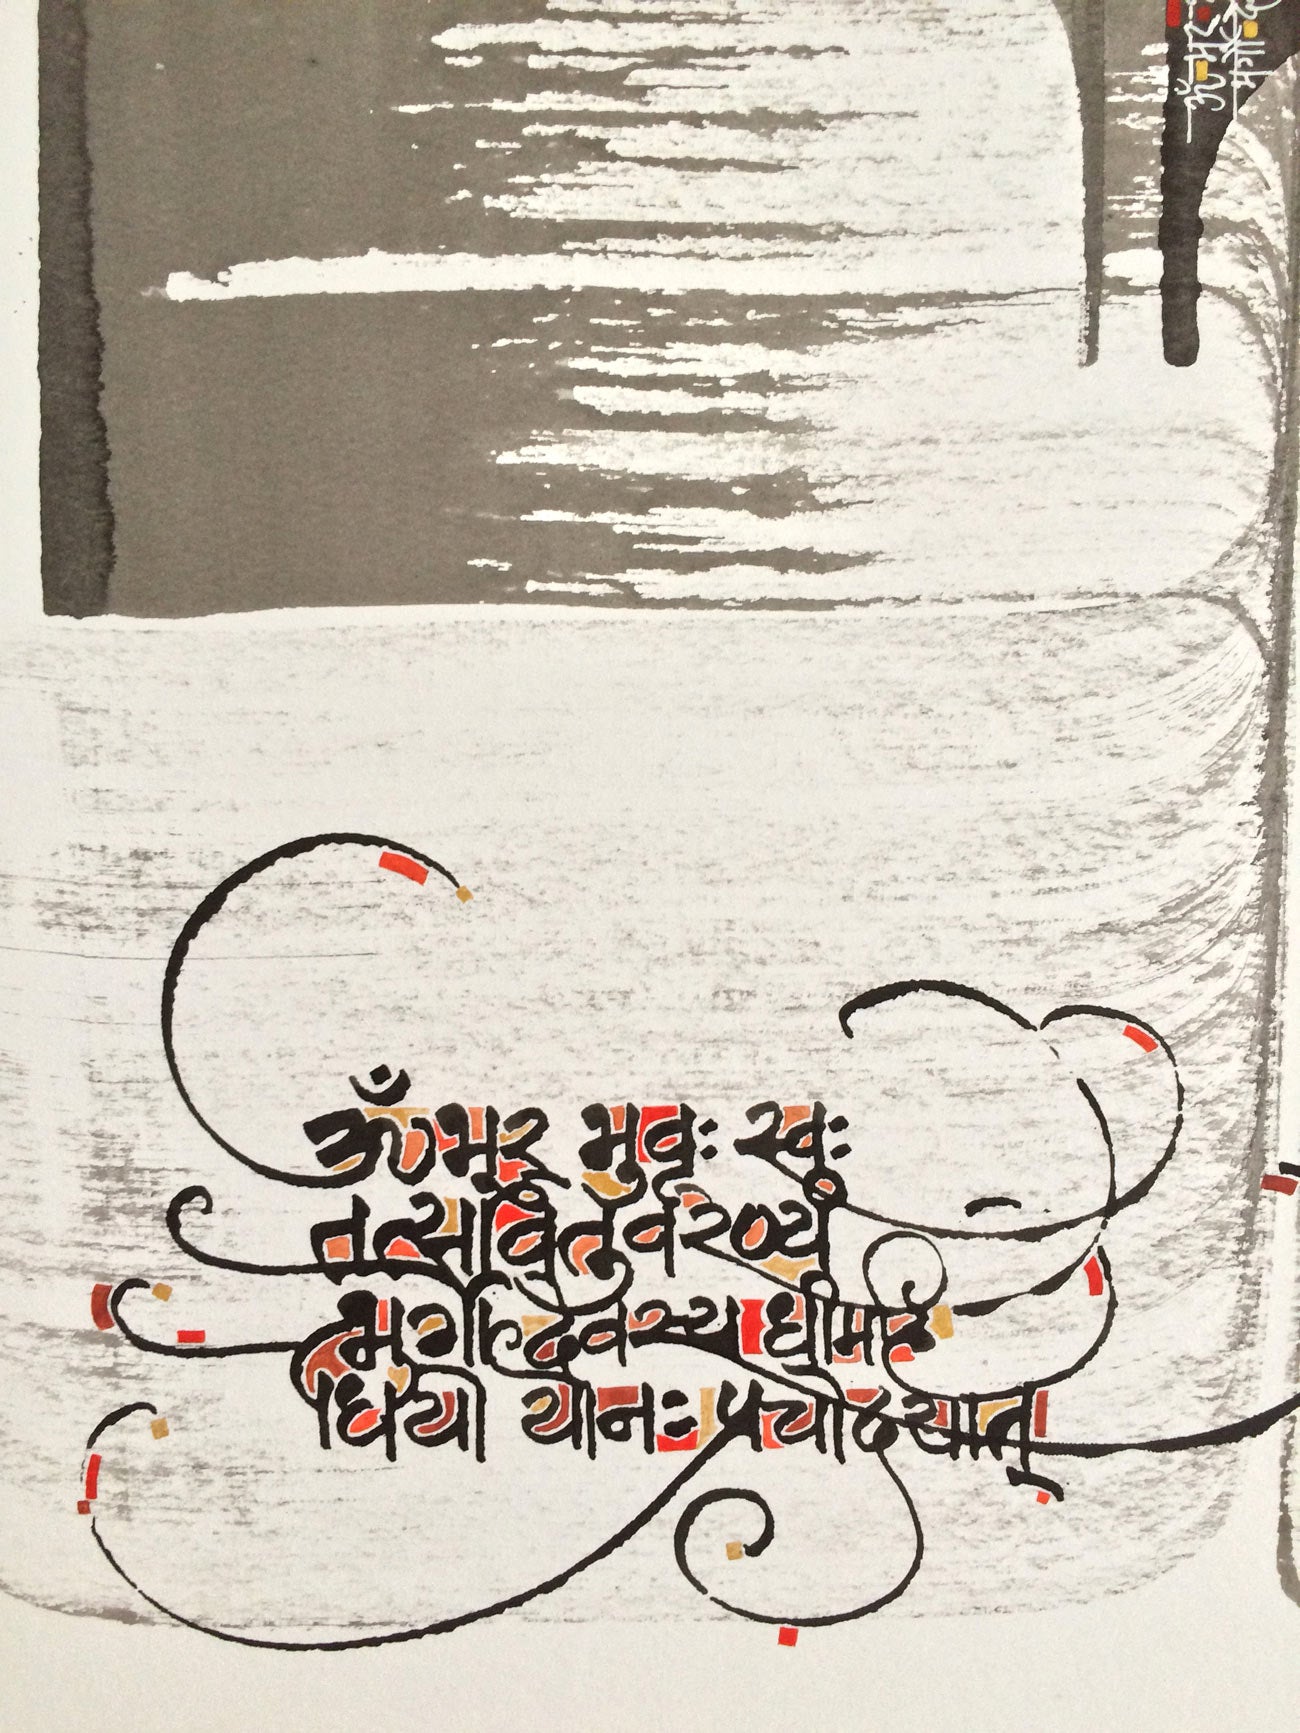 ॐ भूर् भुवः स्वः
तत्सवितुर्वरेण्यं
भर्गो देवस्य धीमहि
धियो यो नः प्रचोदयात्